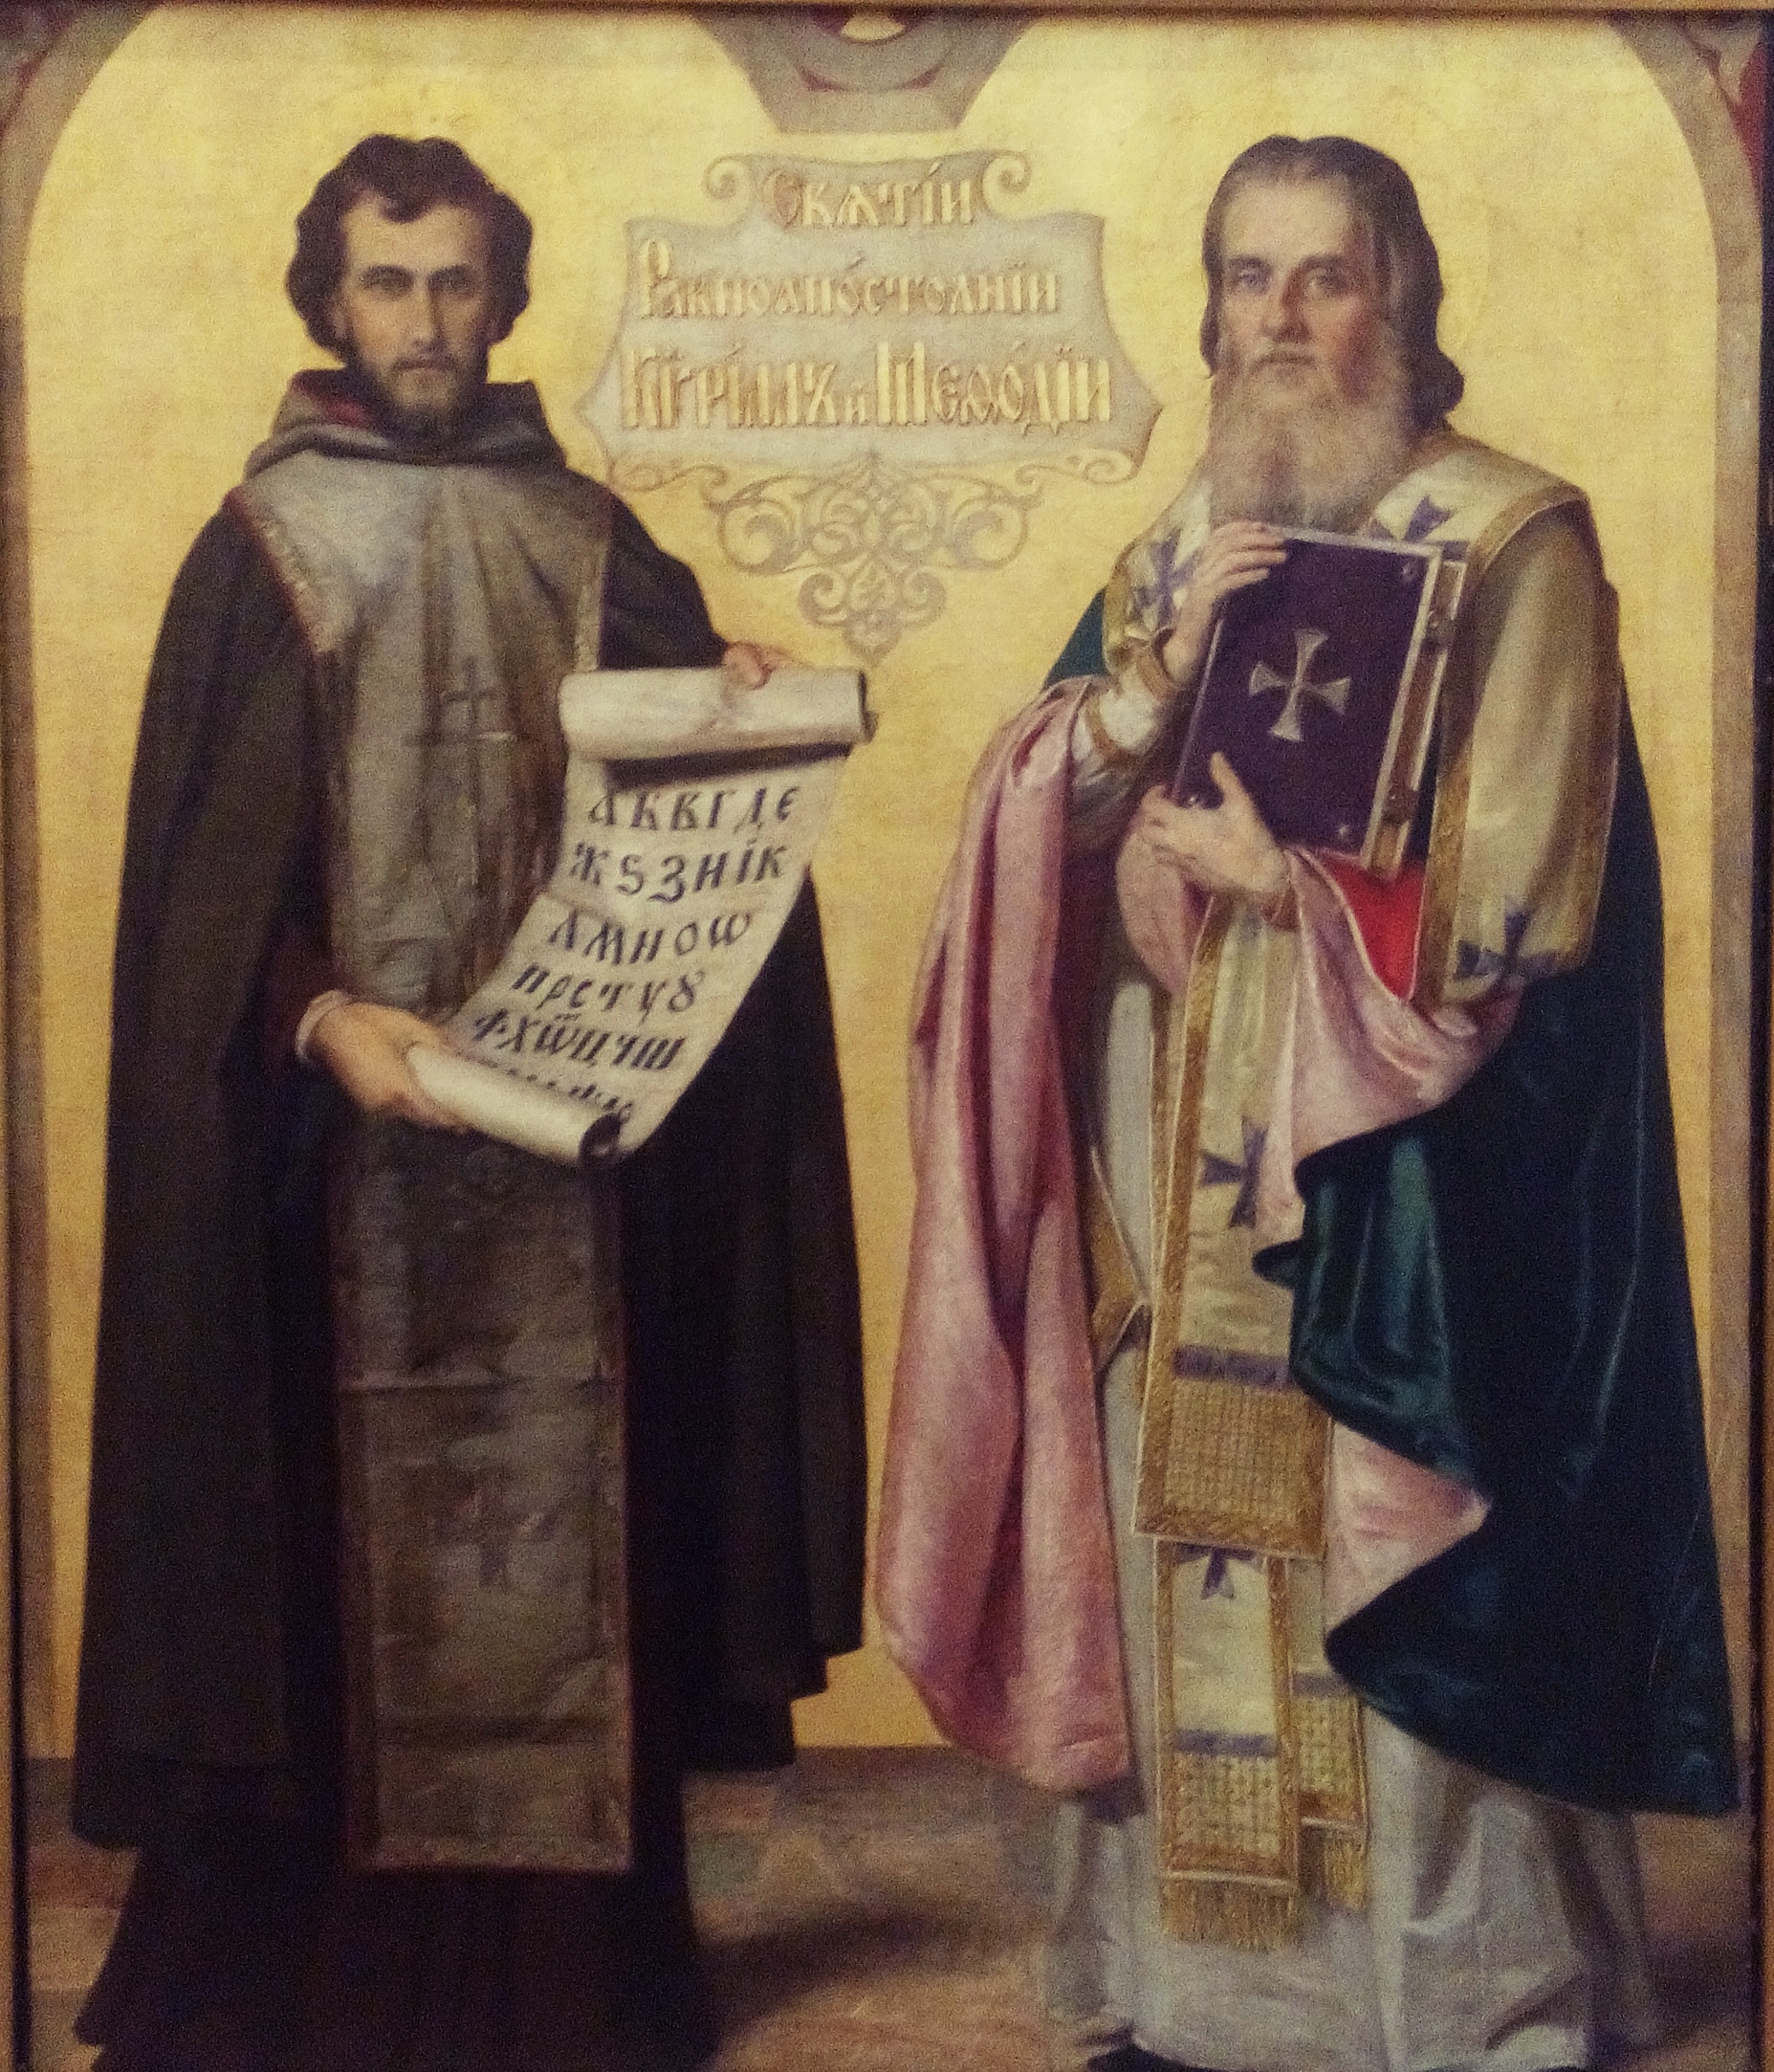 Свѧтíи
Равноапóстолнїи
Кѷрíллъ и Меѳóдїи
АБВГДЄ
ЖЅЗИІК
ЛМНОѠ
ПРСТУꙋ
ФХѾЦЧШ